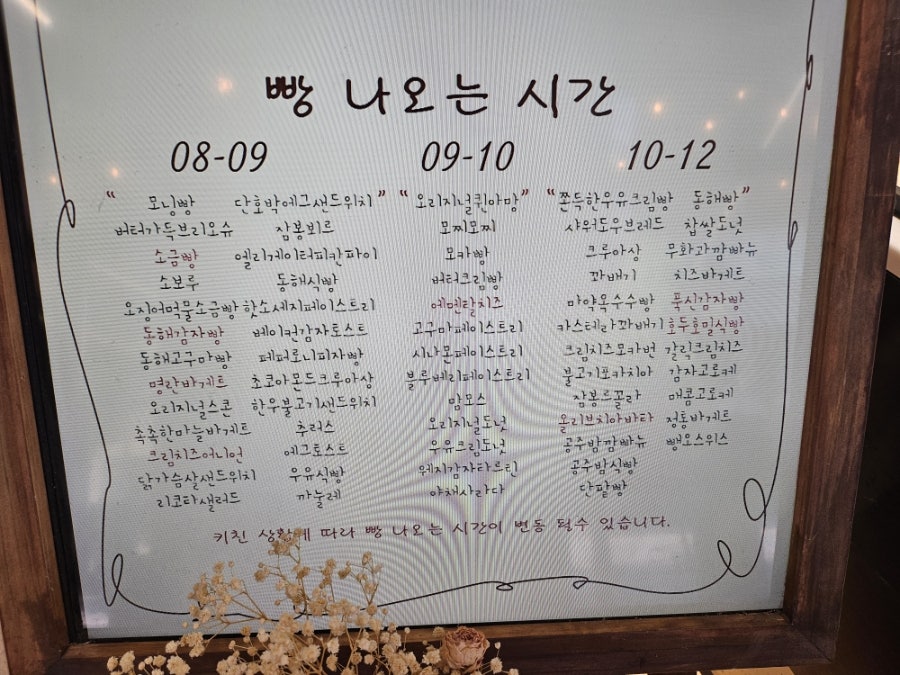 빵 나오는 시간
08-09 09-10 10-12
" 모닝빵 단호박에그샌드위치 " " 오리지널퀸아망 " " 쫀득한우유크림빵 동해빵 "
버터가득브리오슈 잠봉뵈르 모찌모찌 사워도우브레드 찹쌀도넛
소금빵 엘리게이터피칸파이 모카빵 크루아상 무화과깜빠뉴
소보루 동해식빵 버터크림빵 꽈배기 치즈바게트
오징어먹물소금빵 핫소세지페이스트리 에멘탈치즈 마약옥수수빵 푹신감자빵
동해감자빵 베이컨감자토스트 고구마페이스트리 카스테라꽈배기 호두호밀식빵
동해고구마빵 페퍼로니피자빵 시나몬페이스트리 크림치즈모카번 갈릭크림치즈
명란바게트 초코아몬드크루아상 블루베리페이스트리 불고기포카치아 감자고로케
오리지널스콘 한우불고기샌드위치 맘모스 잠봉드꼴라 매콤고로케
촉촉한마늘바게트 추러스 오리지널도넛 올리브치아바타 정통바게트
크림치즈어니언 에그토스트 우유크림도넛 공주밤깜빠뉴 뺑오스위스
닭가슴살샌드위치 우유식빵 웨지감자타르틴 공주밤식빵
리코타샐러드 까눌레 야채사라다 단팥빵
키친 상황에 따라 빵 나오는 시간이 변동 될수 있습니다.